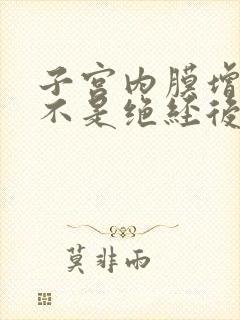 子宫内膜增
不是绝经後
莫非雨